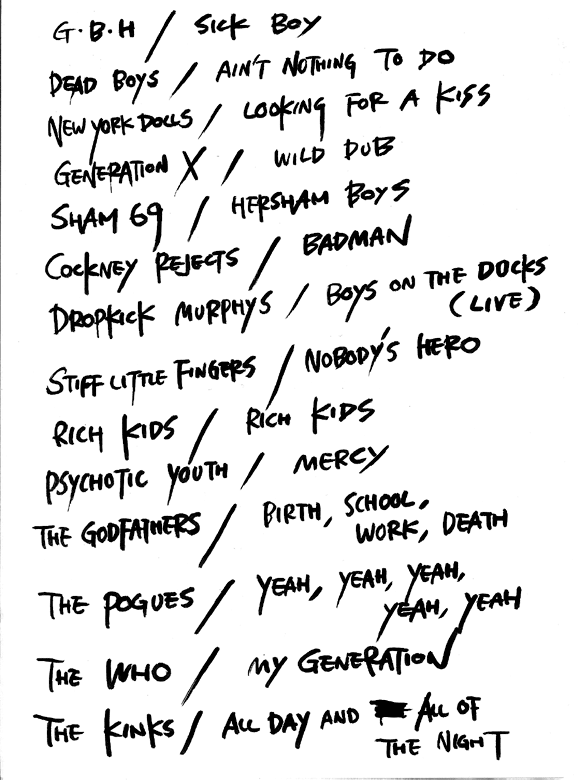 G.B.H / SICK BOY
DEAD BOYS / AIN'T NOTHING TO DO
NEW YORK DOLLS / LOOKING FOR A KISS
GENERATION X / WILD DUB
SHAM 69 / HERSHAM BOYS
COCKNEY REJECTS / BADMAN
DROPKICK MURPHYS / BOYS ON THE DOCKS
(LIVE)
STIFF LITTLE FINGERS / NOBODY'S HERO
RICH KIDS / RICH KIDS
PSYCHOTIC YOUTH / MERCY
THE GODFATHERS / BIRTH, SCHOOL,
WORK, DEATH
THE POGUES / YEAH, YEAH, YEAH,
YEAH, YEAH
THE WHO / MY GENERATION
THE KINKS / ALL DAY AND ALL OF
THE NIGHT